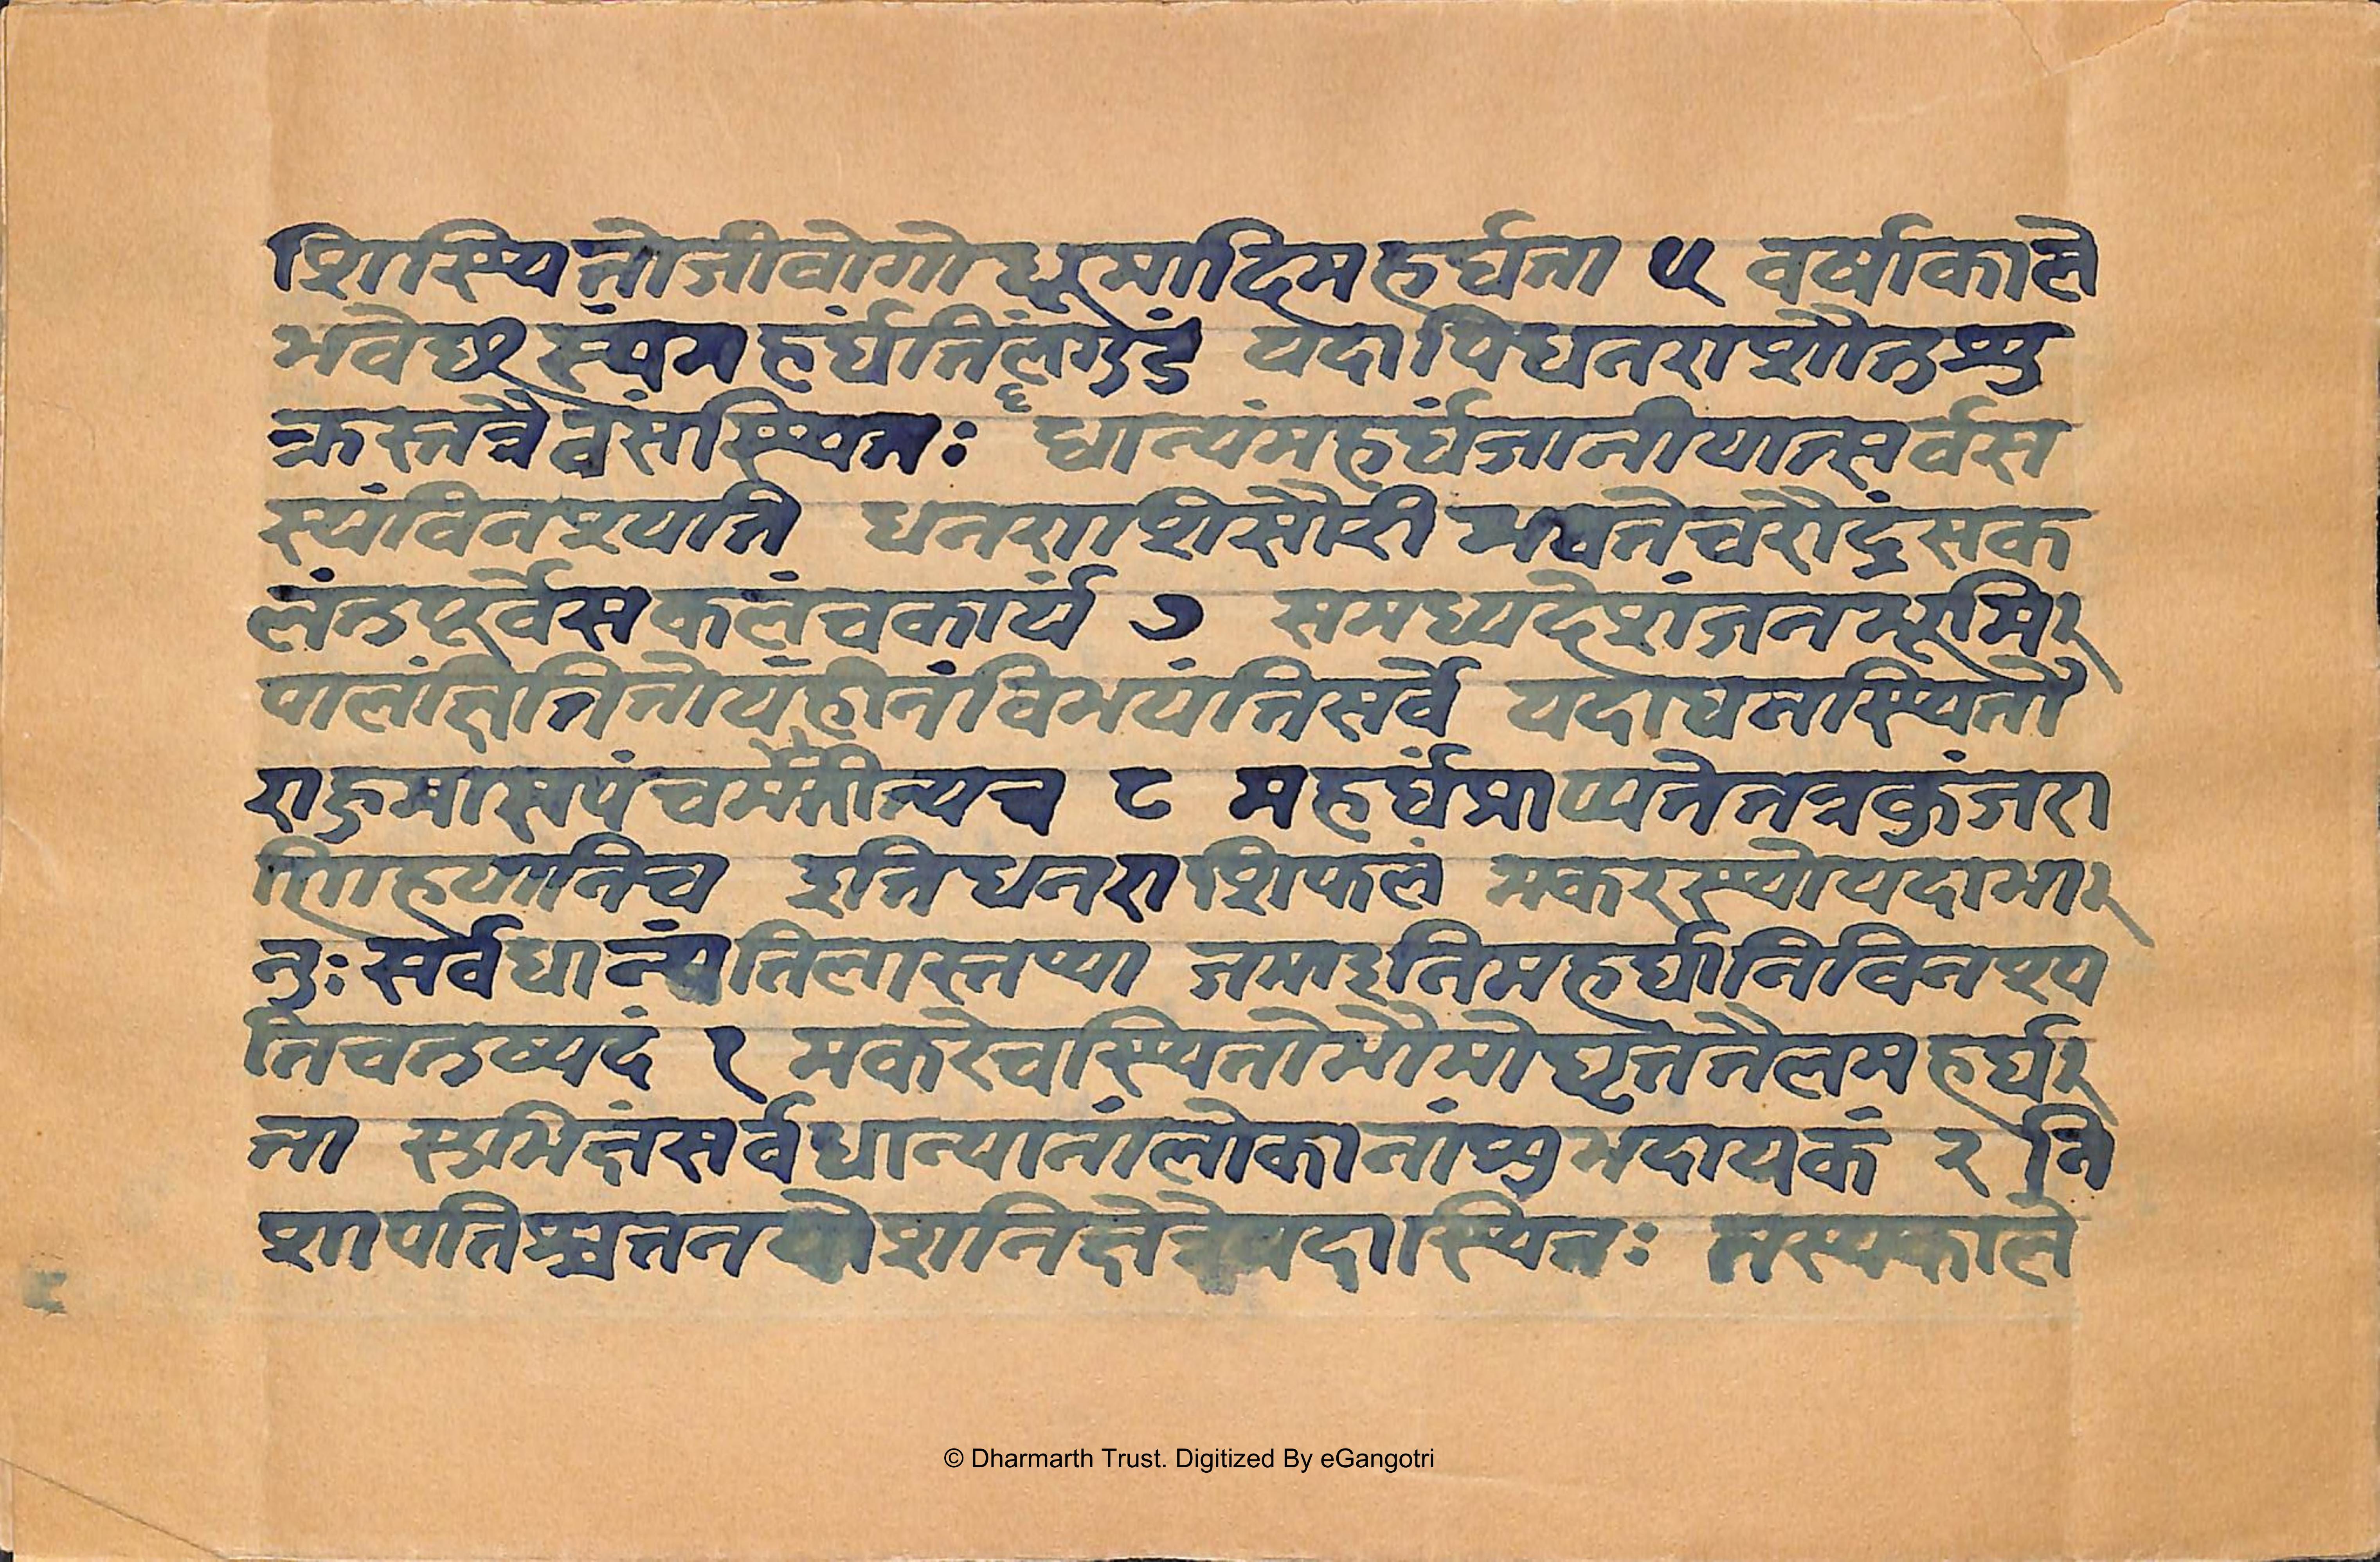 शिस्थितोजीवोगोधूमादिमहर्घता ५ वर्षाकाले
भवेछस्यंमहर्घंतिलंगुडं यदापिधनराशौतुशु
६
क्रस्तत्रैवसंस्थितः धान्यंमहर्घंजानीयात्सर्वस
स्यंविनश्यति धनराशिसौरी भवतेचरौद्रंसक
लंतपूर्वेसकलंचकार्यं ७ समध्यदेशंजनभूमि
पालांक्षितितोयंहीनंविभयंतिसर्वे यदाधनस्थितो
राहुमासपंचमंतीन्यच ८ महर्घंप्राप्यतेतत्रकुंजरा
णिहयानिच इतिधनराशिफलं मकरस्थोयदाभा
नुः सर्वधान्यंतिलास्तथा जमाइतिमहर्घानिविनश्य
तिचतष्यदं १ मकरेचस्थितोभौमोघृततैलमहर्घ
ता सुभिक्षंसर्वधान्यानांलोकानांशुभदायकं २ नि
शापतिश्चतनयौशनिक्षेत्रेयदास्थितः तस्यकाले
© Dharmarth Trust. Digitized By eGangotri